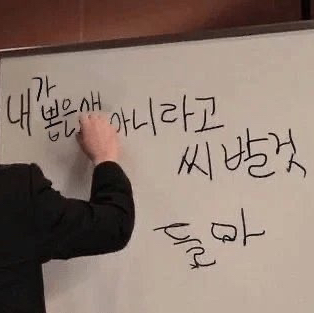 내가 뽑은애 아니라고
씨발것
들아